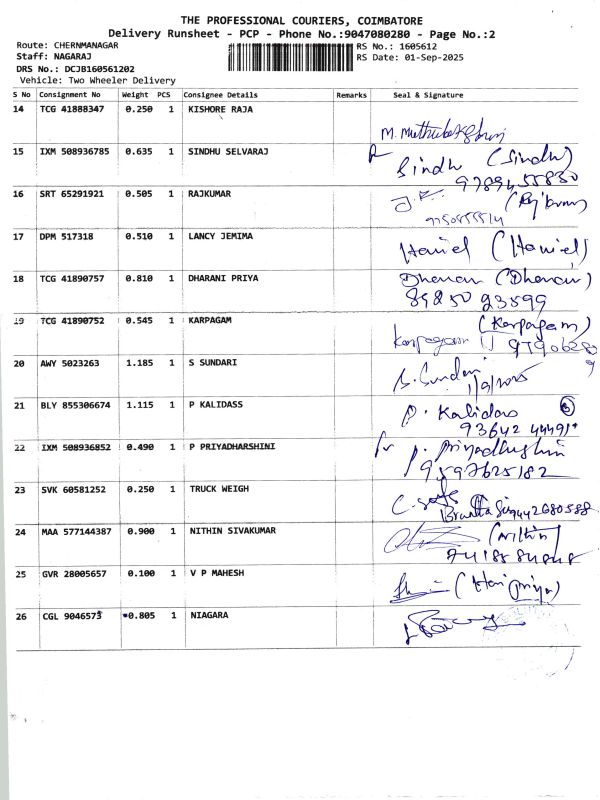 THE PROFESSIONAL COURIERS, COIMBATORE
Delivery Runsheet - PCP - Phone No.:9047080280 - Page No.:2
Route: CHERNMANAGAR RS No.: 1605612
Staff: NAGARAJ RS Date: 01-Sep-2025
DRS No.: DCJB160561202
Vehicle: Two Wheeler Delivery
S No Consignment No Weight PCS Consignee Details Remarks Seal & Signature
14 TCG 41888347 0.250 1 KISHORE RAJA
15 IXM 508936785 0.635 1 SINDHU SELVARAJ Sindhu (Sindhu)
9789455830
16 SRT 65291921 0.505 1 RAJKUMAR (Rajkumar)
17 DPM 517318 0.510 1 LANCY JEMIMA Haniel (Haniel)
18 TCG 41890757 0.810 1 DHARANI PRIYA
89250 23599
19 TCG 41890752 0.545 1 KARPAGAM (Karpagam)
Karpagam
20 AWY 5023263 1.185 1 S SUNDARI S. Sundari 1/9/2025
21 BLY 855306674 1.115 1 P KALIDASS P. Kalidass
93642 44491
22 IXM 508936852 0.490 1 P PRIYADHARSHINI P. Priyadharshini
9597625182
23 SVK 60581252 0.250 1 TRUCK WEIGH
9442680588
24 MAA 577144387 0.900 1 NITHIN SIVAKUMAR (Nithin)
25 GVR 28005657 0.100 1 V P MAHESH (Haripriya)
26 CGL 9046573 0.805 1 NIAGARA